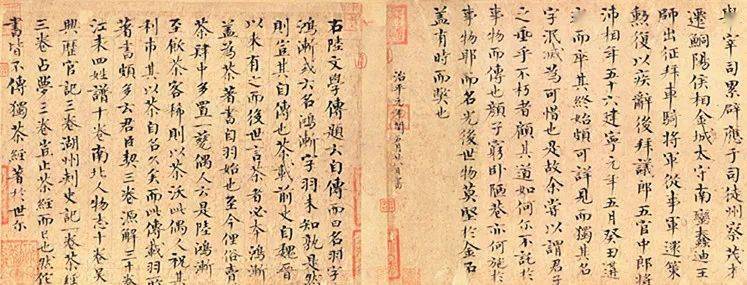 與宰司累辟應于司徒州察茂才
遷鮦陽侯相金城太守南蠻蠢迪王
師出征拜車騎將軍從事軍還策
勳復以疾辭後拜議郎五官中郎將
沛相年五十六建寧元年五月癸丑遘
疾而卒其終始頗可詳見而獨其名
字泯滅為可惜也是故余嘗以謂君子
之垂乎不朽者顧其道如何尒不託於
事物而傳也顏子窮卧陋巷亦何施於
事物耶而名光後世物莫堅於金石
蓋有時而獘也
治平元年閏五月廿八日書
右陸文學傳題云自傳而曰名羽字
鴻漸或云名鴻漸字羽未知孰是然
則豈其自傳也茶載前史自魏晉
以來有之而後世言茶者必本鴻漸
蓋為茶著書自羽始也至今俚俗賣
茶肆中多置一甆偶人云是陸鴻漸
至飲茶客稀則以茶沃此偶人祝其
利市其以茶自名久矣而此傳載羽所
著書頗多云君臣契三卷源解三十卷
江表四姓譜十卷南北人物志十卷吳
興歷官記三卷湖州刺史記一卷茶經
三卷占夢三卷豈止茶經而已也然佗
書皆不傳獨茶經著於世尒